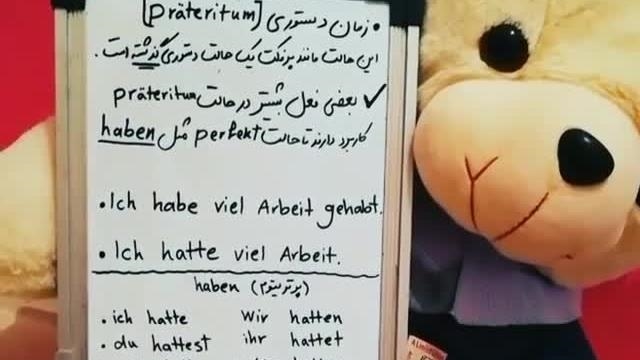 • زمان دستوری [präteritum]
این حالت مانند پرفکت یک حالت دستوری گذشته است.
✓ بعضی فعل بیشتر در حالت präteritum
کاربرد دارند تا حالت perfekt مثل haben
• Ich habe viel Arbeit gehabt.
• Ich hatte viel Arbeit.
haben (پرتریتوم)
• ich hatte wir hatten
• du hattest ihr hattet